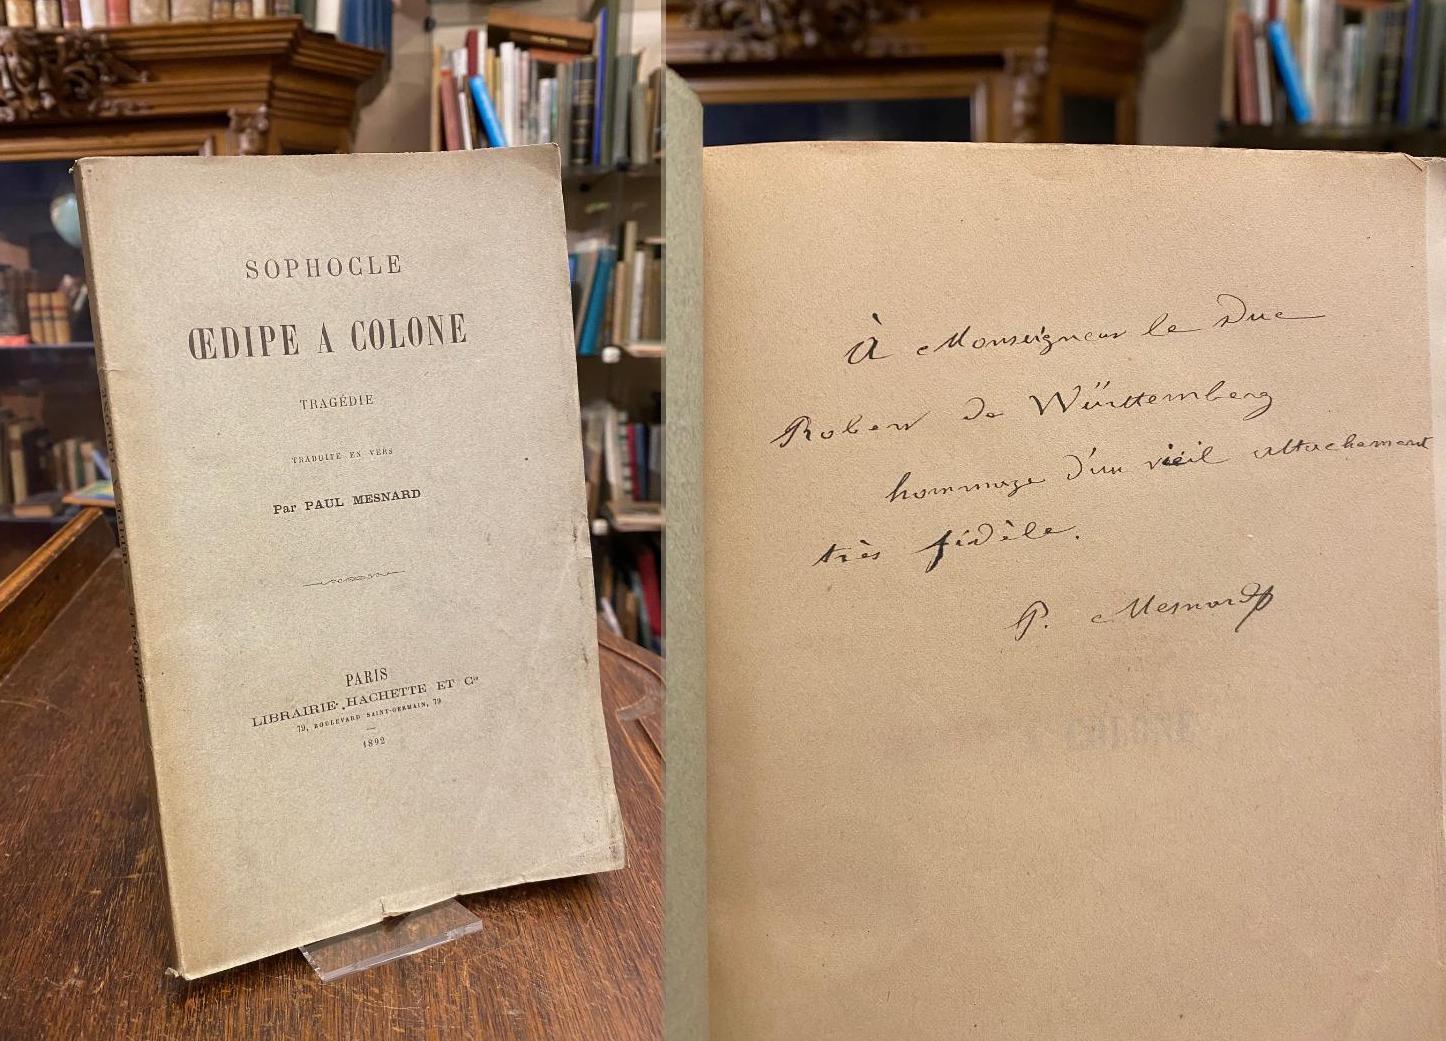 SOPHOCLE
ŒDIPE A COLONE
TRAGÉDIE
TRADUITE EN VERS
Par PAUL MESNARD
PARIS
LIBRAIRIE HACHETTE ET Cie
79, BOULEVARD SAINT-GERMAIN, 79
1892
À Monseigneur le Duc
Robert de Württemberg
hommage d'un vieil attachement
très fidèle.
P. Mesnard